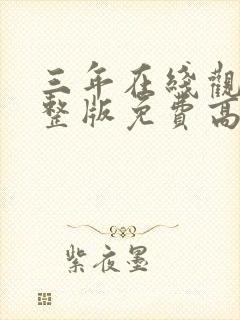 三年在线觀
整版免費高
紫夜墨